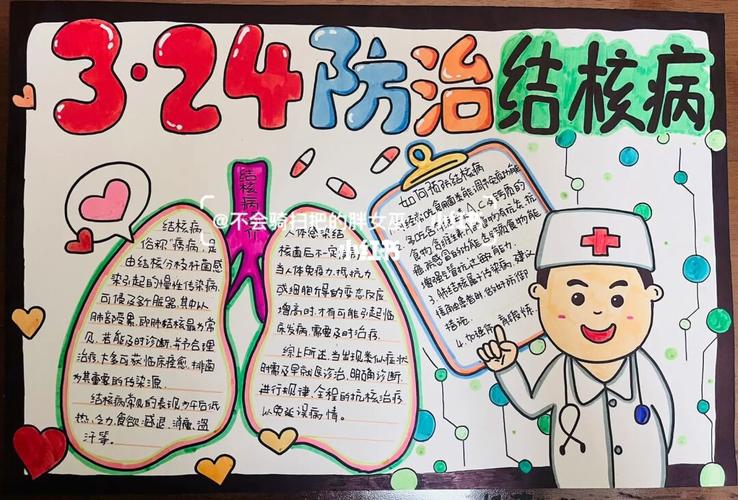 3·24防治结核病
结核病
@不会骑扫把的胖女巫
小红书
小红书
结核病
俗称"痨病",是
由结核分枝杆菌感
染引起的慢性传染病
可侵及许多脏器,其中以
肺部受累,即肺结核最为常
见,若能及时诊断,并予合理
治疗,大多可获临床痊愈,排菌
为其重要的传染源.
结核病常见的表现为午后低
热,乏力,食欲减退,消瘦,盗
汗等。
人体感染结
核菌后不一定
当人体免疫力,抵抗力
或细胞介导的变态反应
增高时,才有可能引起临
床发病,需要及时治疗.
综上所述,当出现类似症状
时需及早就医诊治,明确诊断,
进行规律、全程的抗核治疗
以免延误病情.
如何预防结核病
食物
增强免疫抗过敏能力.
3.肺结核属于传染病,建议
措施.
4.加强